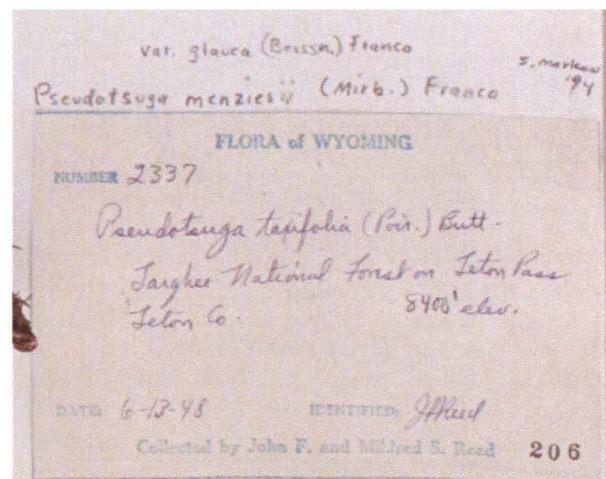 var. glauca (Beissn.) Franco
S. Markow
'94
Pseudotsuga menziesii (Mirb.) Franco
FLORA of WYOMING
NUMBER 2337
Pseudotsuga taxifolia (Poir.) Britt.
Targhee National Forest on Teton Pass
Teton Co. 8400' elev.
DATE: 6-13-48 IDENTIFIED: JFReed
Collected by John F. and Mildred S. Reed 206